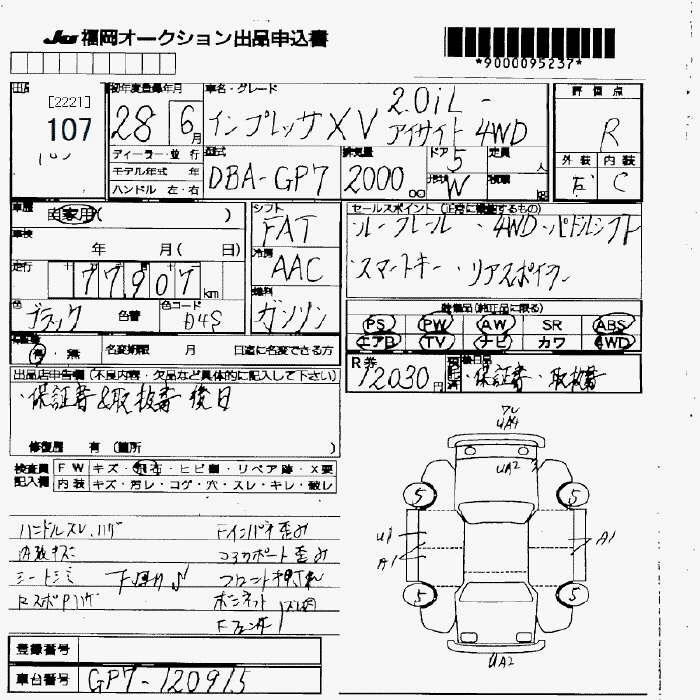 JU 福岡オークション出品申込書
*9000095237*
[2221]
107
初年度登録年月
28 6月
車名・グレード
インプレッサXV 2.0iL-アイサイト 4WD
評価点
R
外装 内装
C
ディーラー・並行
モデル年式 年
ハンドル 左・右
型式
DBA-GP7
排気量
2000cc
ドア
5
形状
W
定員 人
積載 kg
車歴
自家用( )
車検
年 月( 日)
走行
77,907km
色
ブラック 色替
色コード
D4S
シフト
FAT
冷房
AAC
燃料
ガソリン
セールスポイント(正常に機能するもの)
ルーフレール ・4WD・パドルシフト
スマートキー・リアスポイラー
装備品(純正品に限る)
PS PW AW SR ABS
エアB TV ナビ カワ 4WD
有・無 名変期限 月 日迄に名変できる方
R券
12030円
後日品
・保証書・取扱書
出品店申告欄(不良内容・欠品など具体的に記入して下さい)
・保証書&取扱書 後日
修復歴 有(箇所 )
検査員記入欄
FW キズ・飛石・ヒビ割・リペア跡・X要
内装 キズ・汚レ・コゲ・穴・スレ・キレ・破レ
ハンドルスレ、ハゲ
内装キズ
シートシミ
RスポPハゲ
下廻りサ
Fインパネ歪み
コアサポート歪み
フロント押され
ボンネット
Fフェンダー
UA4
UA2
5 5
U1
A1 A1
5 5
UA2
登録番号
車台番号 GP7-120915